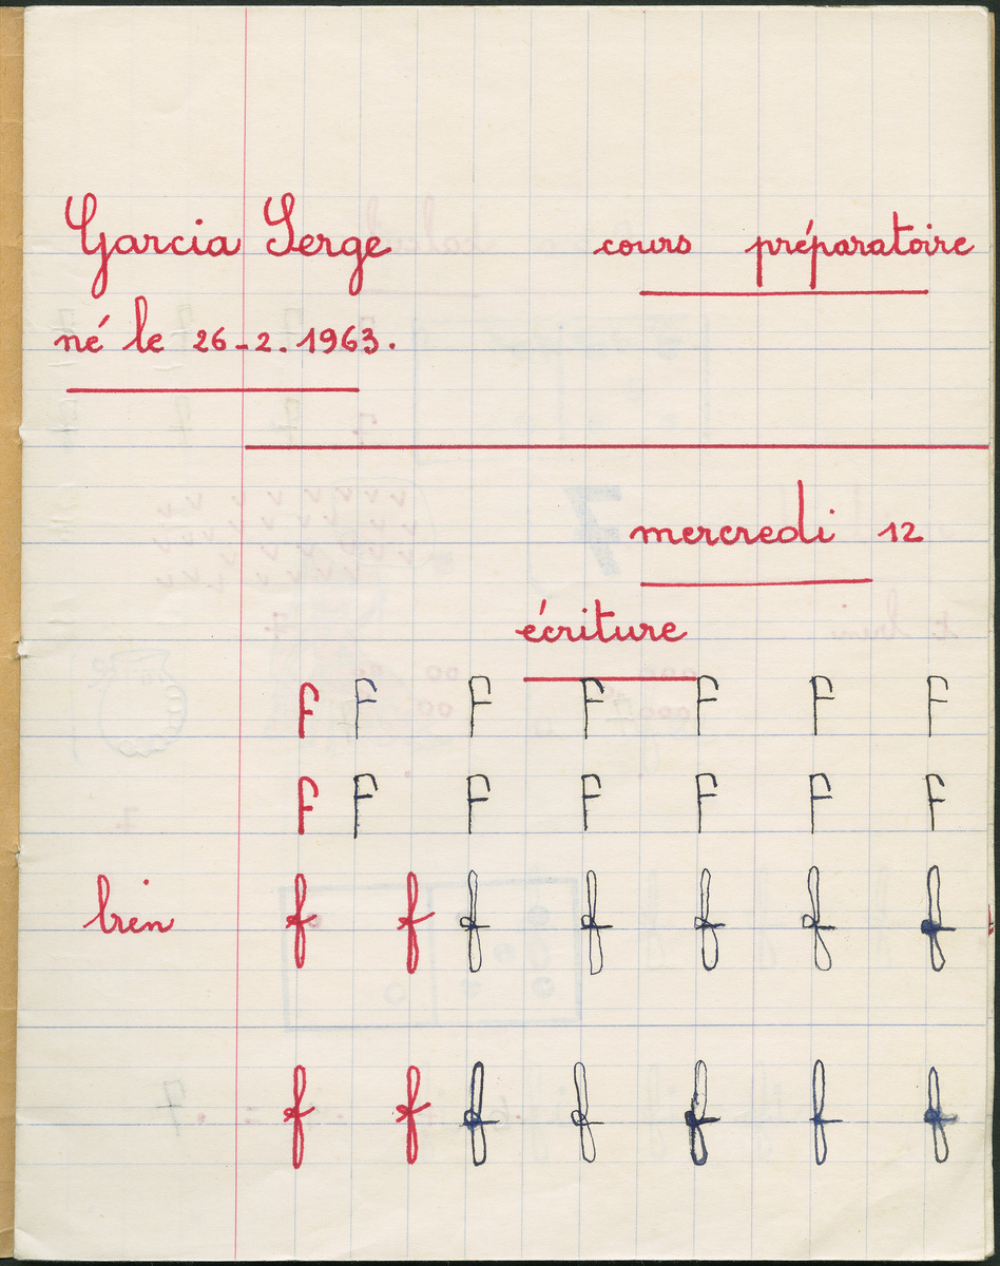 Garcia Serge cours préparatoire
né le 26-2.1963.
mercredi 12
écriture
F F F F F F F
F F F F F F F
bien f f f f f f f
f f f f f f f